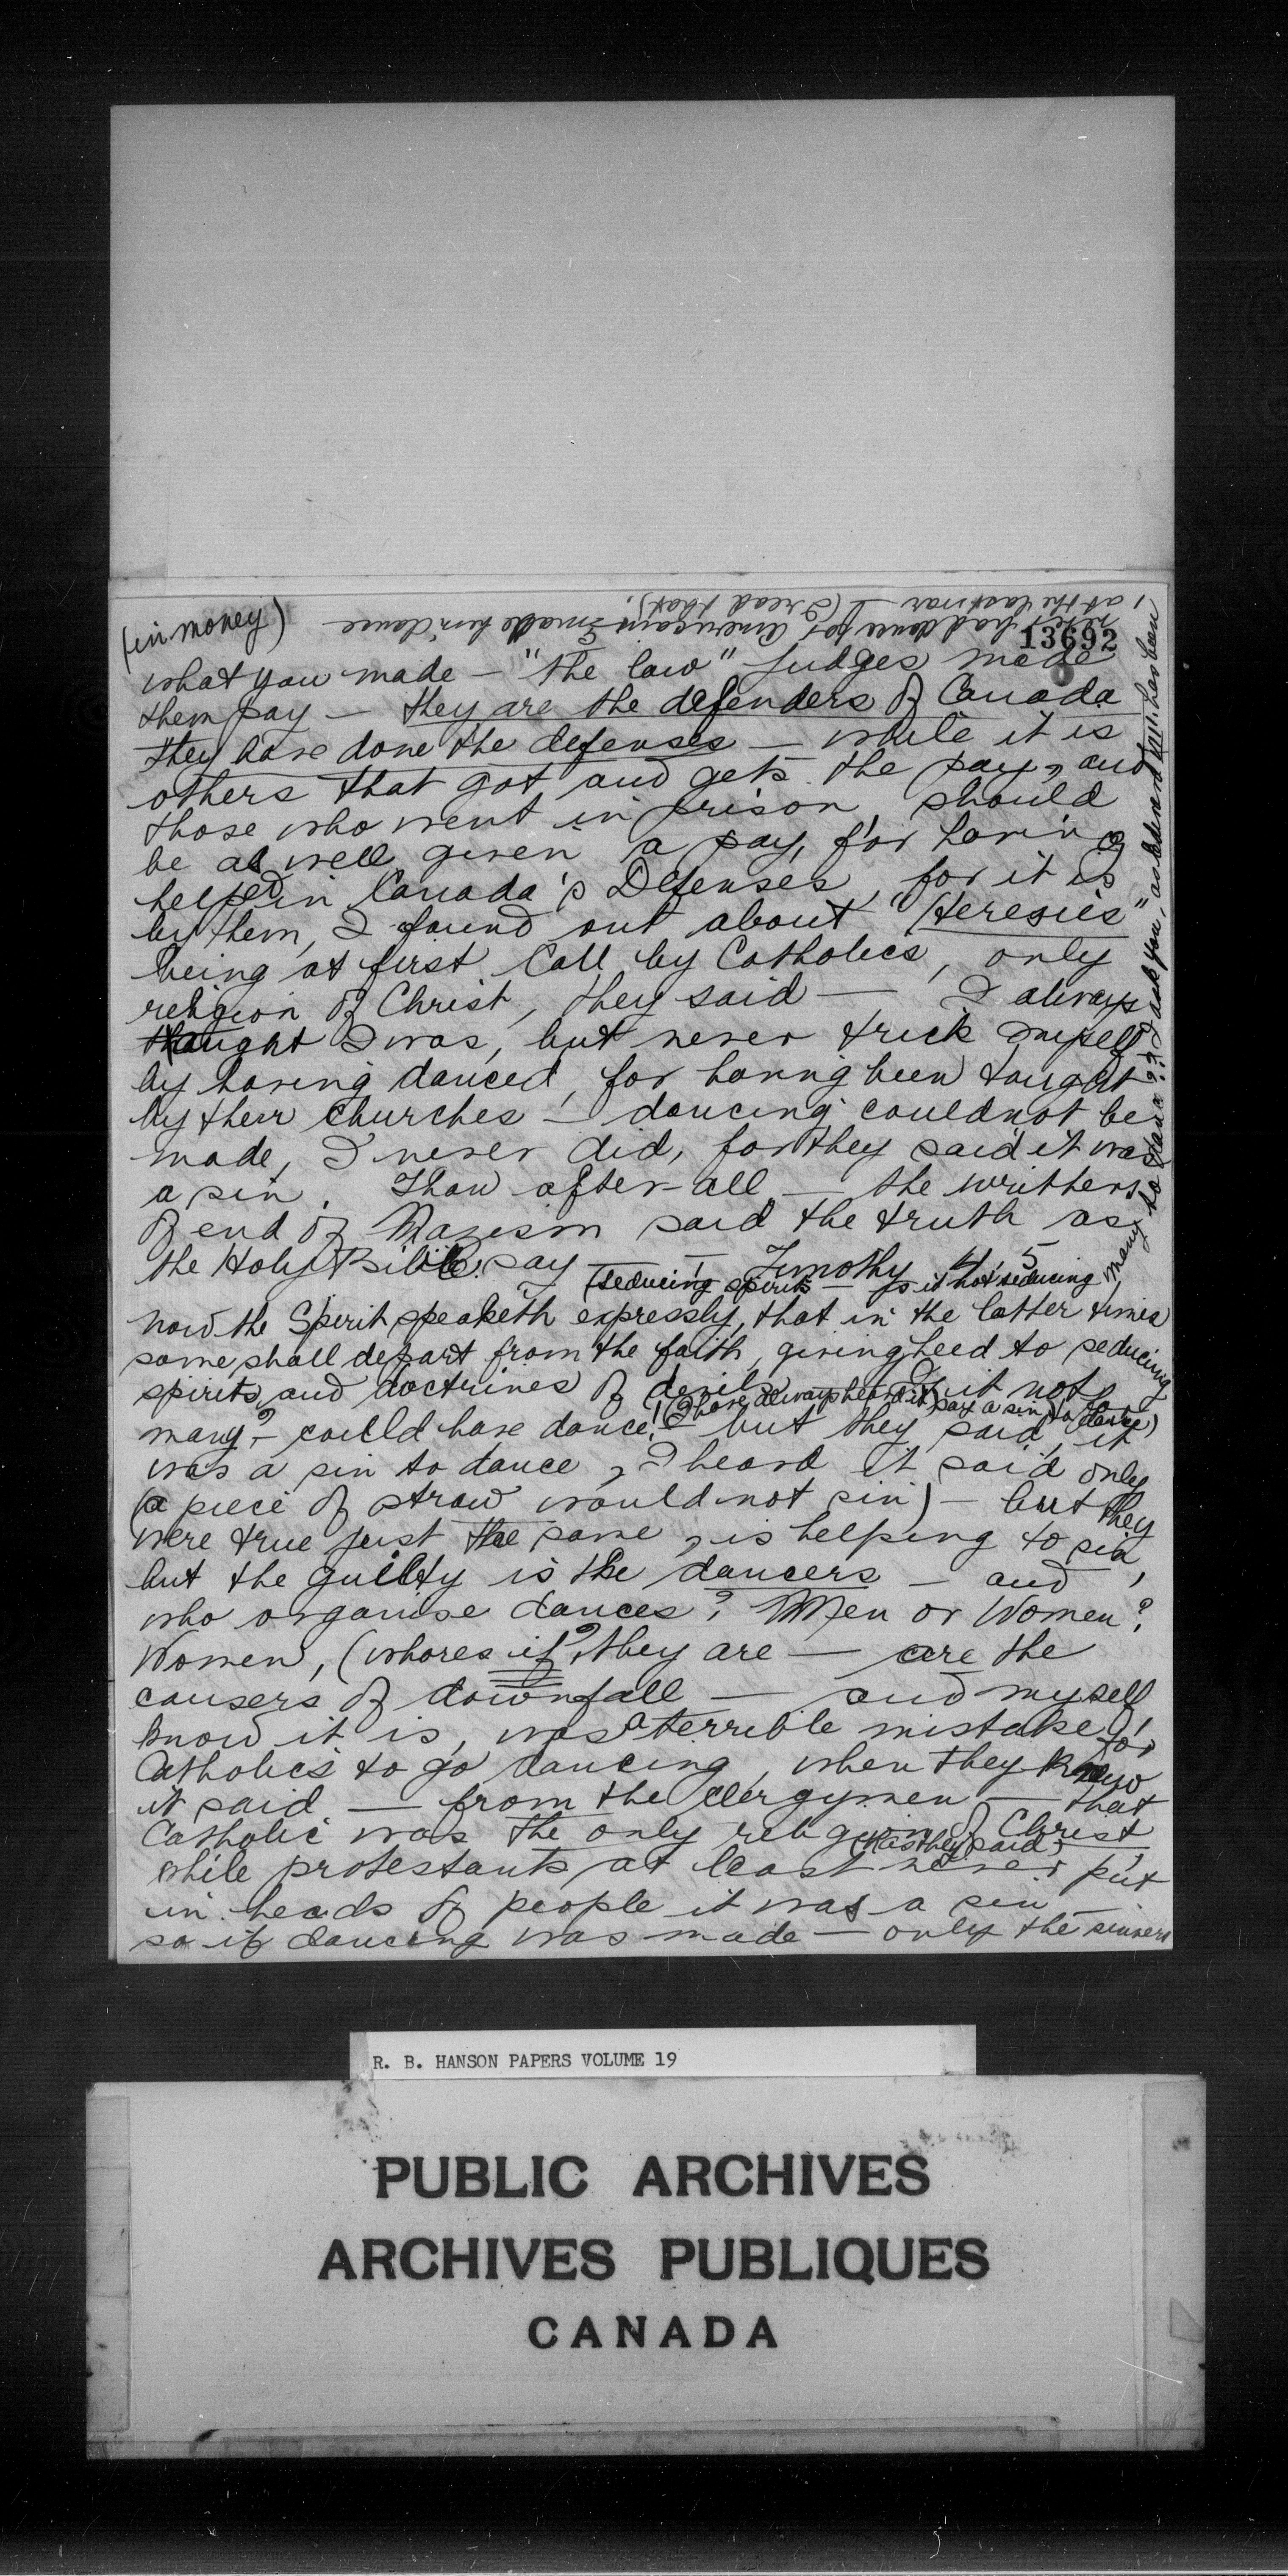 (in money)
13692
what you made — "the law" Judges made
them pay — they are the defenders of Canada
they have done the defenses — while it is
others that got and gets the pay, and
those who went in prison should
be as well given a pay, for having
helped in Canada's Defenses, for it is
by them, I found out about "Heresies"
being at first Call by Catholics, only
religion of Christ, they said — I always
thaught I was, but never trick myself
by having danced, for having been taught
by their churches — dancing could not be
made, I never did, for they said it was
a sin. Thow after-all — the writhers
of end of Nazism said the truth as
the Holy Bible say — Timothy 4, 5
(seducing spirits — is it not seducing many to dance?? I ask you, as
now the Spirit speaketh expressly, that in the latter times
some shall depart from the faith, giving heed to seducing
spirits, and doctrines of devils. Is it not
(I have always heard it say a sin to dance)
many? — could have dance! — but they said, it
was a sin to dance, I heard it said only
(a piece of straw would not sin) — but they
were true just the same, is helping to sin,
but the guilty is the dancers — and
who organise dances? Men or Women?
Women, (whores if? they are — are the
causers of downfall — and myself
know it is, was a terrible mistake for
Catholics to go dancing, when they knew
it said — from the clergymen — that
Catholic was the only religion of Christ,
(as they said)
while protestants at least never put
in heads of people it was a sin —
so if dancing was made — only the sinners
has been
never had dance for Americans made him dance —
at the last war — (I read that).
R. B. HANSON PAPERS VOLUME 19
PUBLIC ARCHIVES
ARCHIVES PUBLIQUES
CANADA